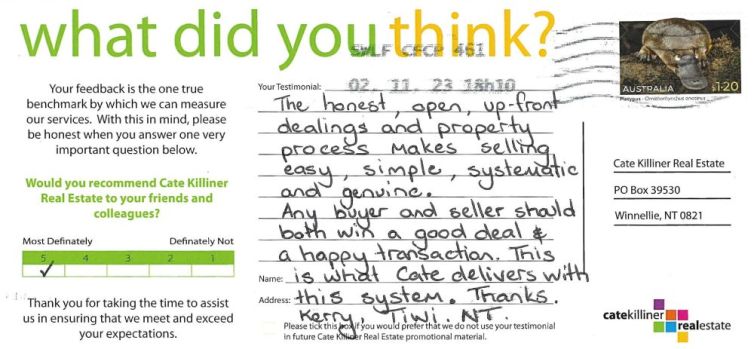 what did you think?
SWLF CFCP 461
02. 11. 23 18h10
AUSTRALIA
$1.20
Platypus - Ornithorhynchus anatinus
Your feedback is the one true
benchmark by which we can measure
our services. With this in mind, please
be honest when you answer one very
important question below.
Would you recommend Cate Killiner
Real Estate to your friends and
colleagues?
Most Definately Definately Not
5 4 3 2 1
✓
Thank you for taking the time to assist
us in ensuring that we meet and exceed
your expectations.
Your Testimonial:
The honest, open, up-front
dealings and property
process makes selling
easy, simple, systematic
and genuine.
Any buyer and seller should
both win a good deal &
a happy transaction. This
Name: is what Cate delivers with
Address: this system. Thanks.
Kerry, Tiwi. NT.
Please tick this box if you would prefer that we do not use your testimonial
in future Cate Killiner Real Estate promotional material.
Cate Killiner Real Estate
PO Box 39530
Winnellie, NT 0821
catekilliner
realestate